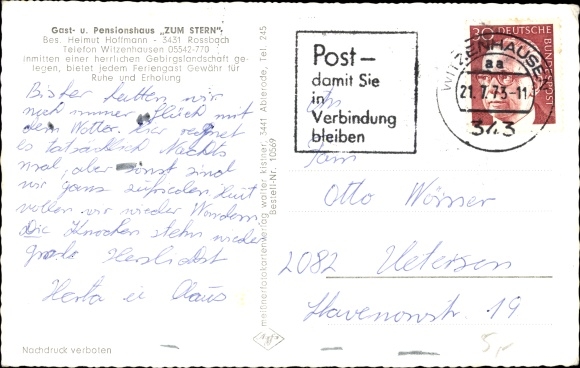 Gast- u. Pensionshaus „ZUM STERN"
Bes. Helmut Hoffmann - 3431 Rossbach
Telefon Witzenhausen 05542-770
inmitten einer herrlichen Gebirgslandschaft ge-
legen, bietet jedem Feriengast Gewähr für
Ruhe und Erholung
Bisher hatten wir
noch immer Glück mit
dem Wetter. Hier regnet
es tatsächlich Nachts
mal, aber sonst sind
wir ganz zufrieden. Heut
wollen wir wieder Wandern
Die Knochen stehn wieder
grade Herzlichst
Herta u Claus
Nachdruck verboten
meißnerfotokartenverlag walter kistner, 3441 Abterode, Tel. 245
Bestell-Nr. 10569
Post –
damit Sie
in
Verbindung
bleiben
WITZENHAUSEN
aa
21.7.73-11
343
30
DEUTSCHE
BUNDESPOST
Fam
Otto Wörner
2082 Uetersen
Havenowstr. 19
5,-